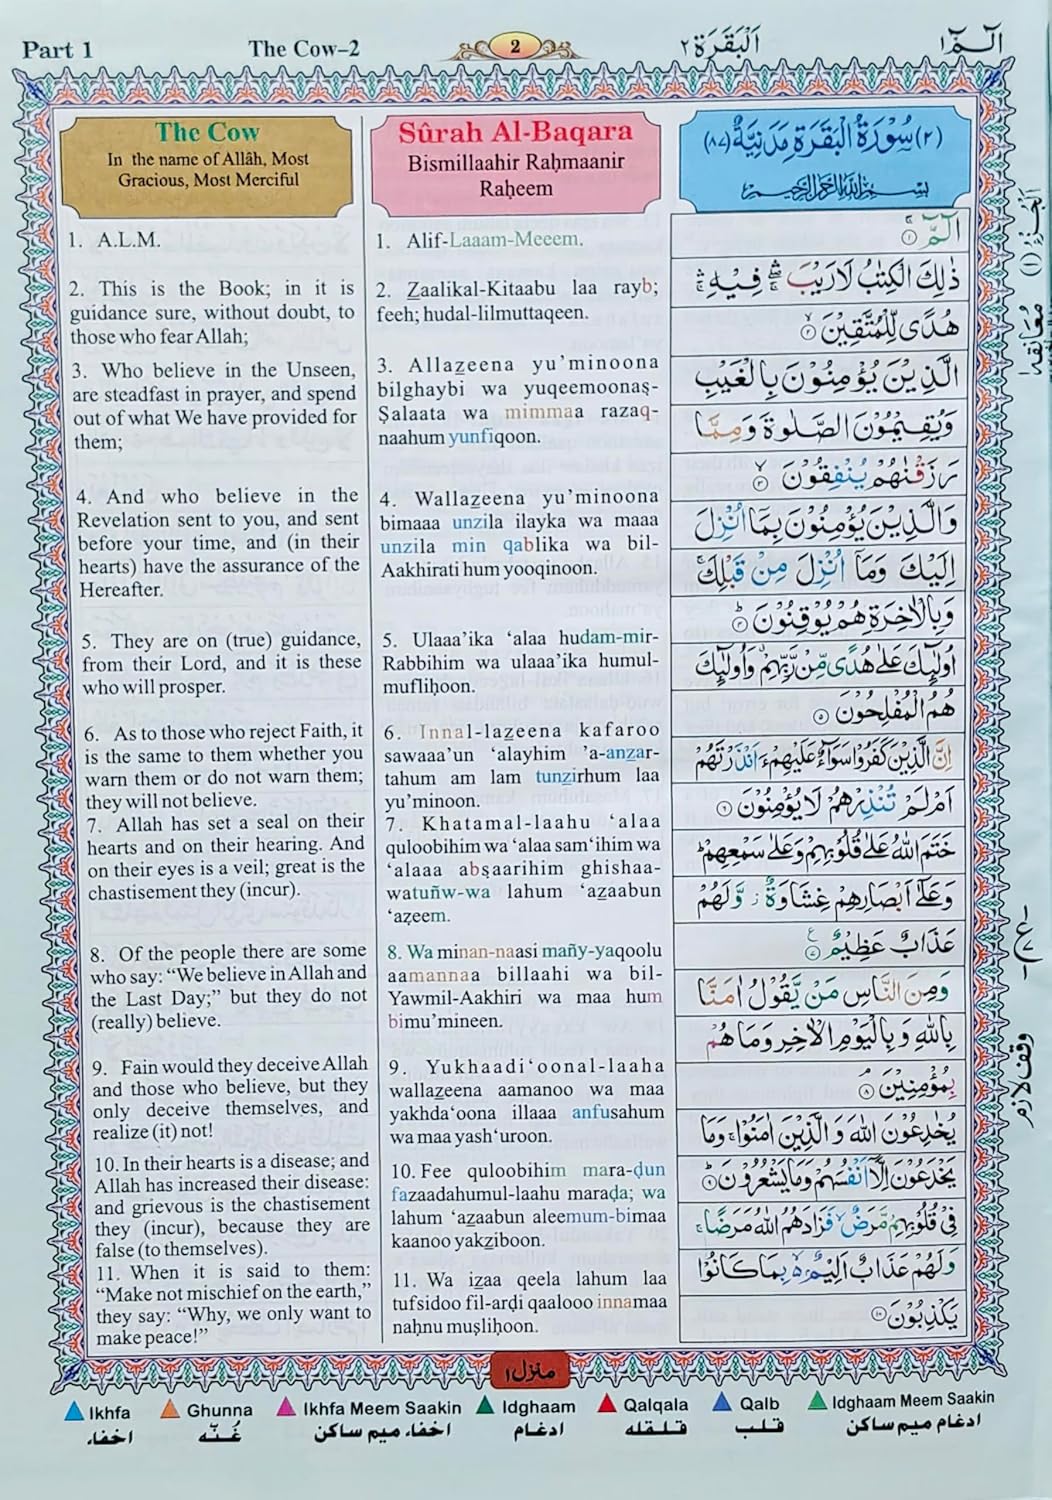 Part 1
The Cow–2
2
اَلْبَقَرَة ٢
الٓـمّٓ ١
The Cow
In the name of Allâh, Most
Gracious, Most Merciful
1. A.L.M.
2. This is the Book; in it is
guidance sure, without doubt, to
those who fear Allah;
3. Who believe in the Unseen,
are steadfast in prayer, and spend
out of what We have provided for
them;
4. And who believe in the
Revelation sent to you, and sent
before your time, and (in their
hearts) have the assurance of the
Hereafter.
5. They are on (true) guidance,
from their Lord, and it is these
who will prosper.
6. As to those who reject Faith, it
is the same to them whether you
warn them or do not warn them;
they will not believe.
7. Allah has set a seal on their
hearts and on their hearing. And
on their eyes is a veil; great is the
chastisement they (incur).
8. Of the people there are some
who say: “We believe in Allah and
the Last Day;” but they do not
(really) believe.
9. Fain would they deceive Allah
and those who believe, but they
only deceive themselves, and
realize (it) not!
10. In their hearts is a disease; and
Allah has increased their disease:
and grievous is the chastisement
they (incur), because they are
false (to themselves).
11. When it is said to them:
“Make not mischief on the earth,”
they say: “Why, we only want to
make peace!”
Sûrah Al-Baqara
Bismillaahir Raḥmaanir
Raḥeem
1. Alif-Laaam-Meeem.
2. Z̲aalikal-Kitaabu laa rayb;
feeh; hudal-lilmuttaqeen.
3. Allaz̲eena yu’minoona
bilghaybi wa yuqeemoonaṣ-
Ṣalaata wa mimmaa razaq-
naahum yunfiqoon.
4. Wallaz̲eena yu’minoona
bimaaa unzila ilayka wa maaa
unzila min qablika wa bil-
Aakhirati hum yooqinoon.
5. Ulaaa’ika ‘alaa hudam-mir-
Rabbihim wa ulaaa’ika humul-
mufliḥoon.
6. Innal-laz̲eena kafaroo
sawaaa’un ‘alayhim ’a-anz̲ar-
tahum am lam tunz̲irhum laa
yu’minoon.
7. Khatamal-laahu ‘alaa
quloobihim wa ‘alaa sam‘ihim wa
‘alaaa abṣaarihim ghishaa-
watuñw-wa lahum ‘az̲aabun
‘aẓeem.
8. Wa minan-naasi mañy-yaqoolu
aamannaa billaahi wa bil-
Yawmil-Aakhiri wa maa hum
bimu’mineen.
9. Yukhaadi‘oonal-laaha
wallaz̲eena aamanoo wa maa
yakhda‘oona illaaa anfusahum
wa maa yash‘uroon.
10. Fee quloobihim mara-ḍun
fazaadahumul-laahu maraḍa; wa
lahum ‘az̲aabun aleemum-bimaa
kaanoo yakz̲iboon.
11. Wa iz̲aa qeela lahum laa
tufsidoo fil-arḍi qaalooo innamaa
naḥnu muṣliḥoon.
(٢) سُوْرَةُ الْبَقَرَةِ مَدَنِيَّةٌ (٨٧)
بِسْمِ اللهِ الرَّحْمٰنِ الرَّحِيْمِ
الٓمّٓ ۚ ١
ذٰلِكَ الْكِتٰبُ لَا رَيْبَ ۛ فِيْهِ ۛ
هُدًى لِّلْمُتَّقِيْنَ ٢
الَّذِيْنَ يُؤْمِنُوْنَ بِالْغَيْبِ
وَيُقِيْمُوْنَ الصَّلٰوةَ وَمِمَّا
رَزَقْنٰهُمْ يُنْفِقُوْنَ ٣
وَالَّذِيْنَ يُؤْمِنُوْنَ بِمَآ اُنْزِلَ
اِلَيْكَ وَمَآ اُنْزِلَ مِنْ قَبْلِكَ ۚ
وَبِالْاٰخِرَةِ هُمْ يُوْقِنُوْنَ ٤
اُولٰٓئِكَ عَلٰى هُدًى مِّنْ رَّبِّهِمْ وَاُولٰٓئِكَ
هُمُ الْمُفْلِحُوْنَ ٥
اِنَّ الَّذِيْنَ كَفَرُوْا سَوَآءٌ عَلَيْهِمْ ءَاَنْذَرْتَهُمْ
اَمْ لَمْ تُنْذِرْهُمْ لَا يُؤْمِنُوْنَ ٦
خَتَمَ اللهُ عَلٰى قُلُوْبِهِمْ وَعَلٰى سَمْعِهِمْ ؕ
وَعَلٰٓى اَبْصَارِهِمْ غِشَاوَةٌ ؗ وَّلَهُمْ
عَذَابٌ عَظِيْمٌ ٧
وَمِنَ النَّاسِ مَنْ يَّقُوْلُ اٰمَنَّا
بِاللهِ وَبِالْيَوْمِ الْاٰخِرِ وَمَا هُمْ
بِمُؤْمِنِيْنَ ٨
يُخٰدِعُوْنَ اللهَ وَالَّذِيْنَ اٰمَنُوْا ۚ وَمَا
يَخْدَعُوْنَ اِلَّآ اَنْفُسَهُمْ وَمَا يَشْعُرُوْنَ ٩
فِيْ قُلُوْبِهِمْ مَّرَضٌ ۙ فَزَادَهُمُ اللهُ مَرَضًا ۚ
وَلَهُمْ عَذَابٌ اَلِيْمٌ ۙ بِمَا كَانُوْا
يَكْذِبُوْنَ ١٠
الجزء (١)
معانقه ١
وقف لازم
منزل ١
Ikhfa
Ghunna
Ikhfa Meem Saakin
Idghaam
Qalqala
Qalb
Idghaam Meem Saakin
اخفاء
غُنّه
اخفاء ميم ساكن
ادغام
قلقله
قلب
ادغام ميم ساكن